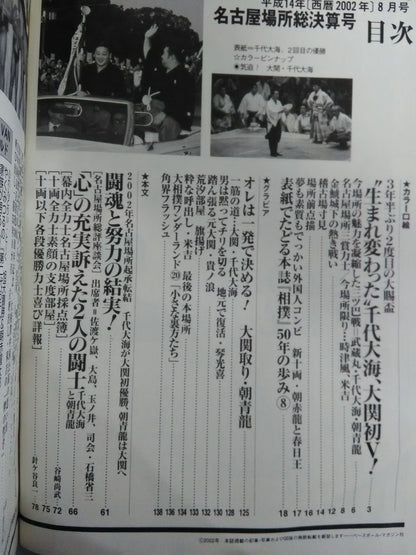 平成14年〔西暦2002年〕8月号
名古屋場所総決算号
目次
表紙=千代大海、2回目の優勝
☆カラーピンナップ
★気迫! 大関・千代大海
★カラー口絵
3年半ぶり2度目の大賜盃
“生まれ変わった”千代大海、大関初V! 3
今場所の魅力を凝縮した三ツ巴戦、武蔵丸・千代大海・朝青龍 6
名古屋場所三賞力士 8
今場所限り…時津風、米吉 12
金鯱城下の熱き戦い 14
稽古場
場所前点描 16
夢も素質もでっかい外国人コンビ 新十両・朝赤龍と春日王 17
表紙でたどる本誌『相撲』50年の歩み⑧ 18
★グラビア
オレは一発で決める! 大関取り・朝青龍 125
一筋の道・大関・千代大海 128
男は黙ってハンを切る 地元で復活・琴光喜
踏ん張る元大関・貴ノ浪
荒汐部屋 旗揚げ
粋な呼出し・米吉 最後の本場所
大相撲ワンダーランド⑳「小さな裏方たち」
角界フラッシュ 138
★本文
2002年名古屋場所起承転結 千代大海が大関初優勝、朝青龍は大関へ
闘魂と努力の結実! 61
〔名古屋場所総評座談会〕 出席者=佐渡ヶ嶽、大島、玉ノ井、司会・石橋省三
「心」の充実訴えた2人の闘士 千代大海と朝青龍 66
〔幕内全力士名古屋場所採点簿〕 谷崎尚武 72
〔十両全力士素顔の支度部屋〕 75
〔十両以下各段優勝力士喜び詳報〕 針ケ谷良一 78
©2002年 本誌掲載の記事・写真および図版の無断転載を厳禁します―ベースボール・マガジン社